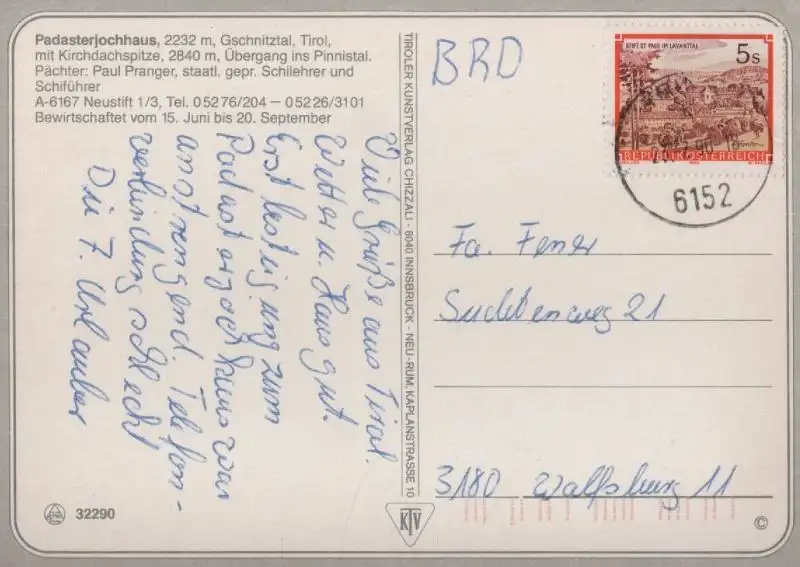 Padasterjochhaus, 2232 m, Gschnitztal, Tirol,
mit Kirchdachspitze, 2840 m, Übergang ins Pinnistal.
Pächter: Paul Pranger, staatl. gepr. Schilehrer und
Schiführer
A-6167 Neustift 1/3, Tel. 0 52 76/204 – 0 52 26/3101
Bewirtschaftet vom 15. Juni bis 20. September
Viele Grüße aus Tirol.
Wetter u. Haus gut.
Erstbesteigung zum
Padasterjochhaus war
anstrengend. Telefon-
verbindung schlecht
Die 7. Urlauber
32290
TIROLER KUNSTVERLAG CHIZZALI - 6040 INNSBRUCK - NEU-RUM, KAPLANSTRASSE 10
KTV
BRD
STIFT ST. PAUL IM LAVANTTAL
5 S
REPUBLIK ÖSTERREICH
6152
Fa. Fener
Sudetenweg 21
3180 Wolfsburg 11
©